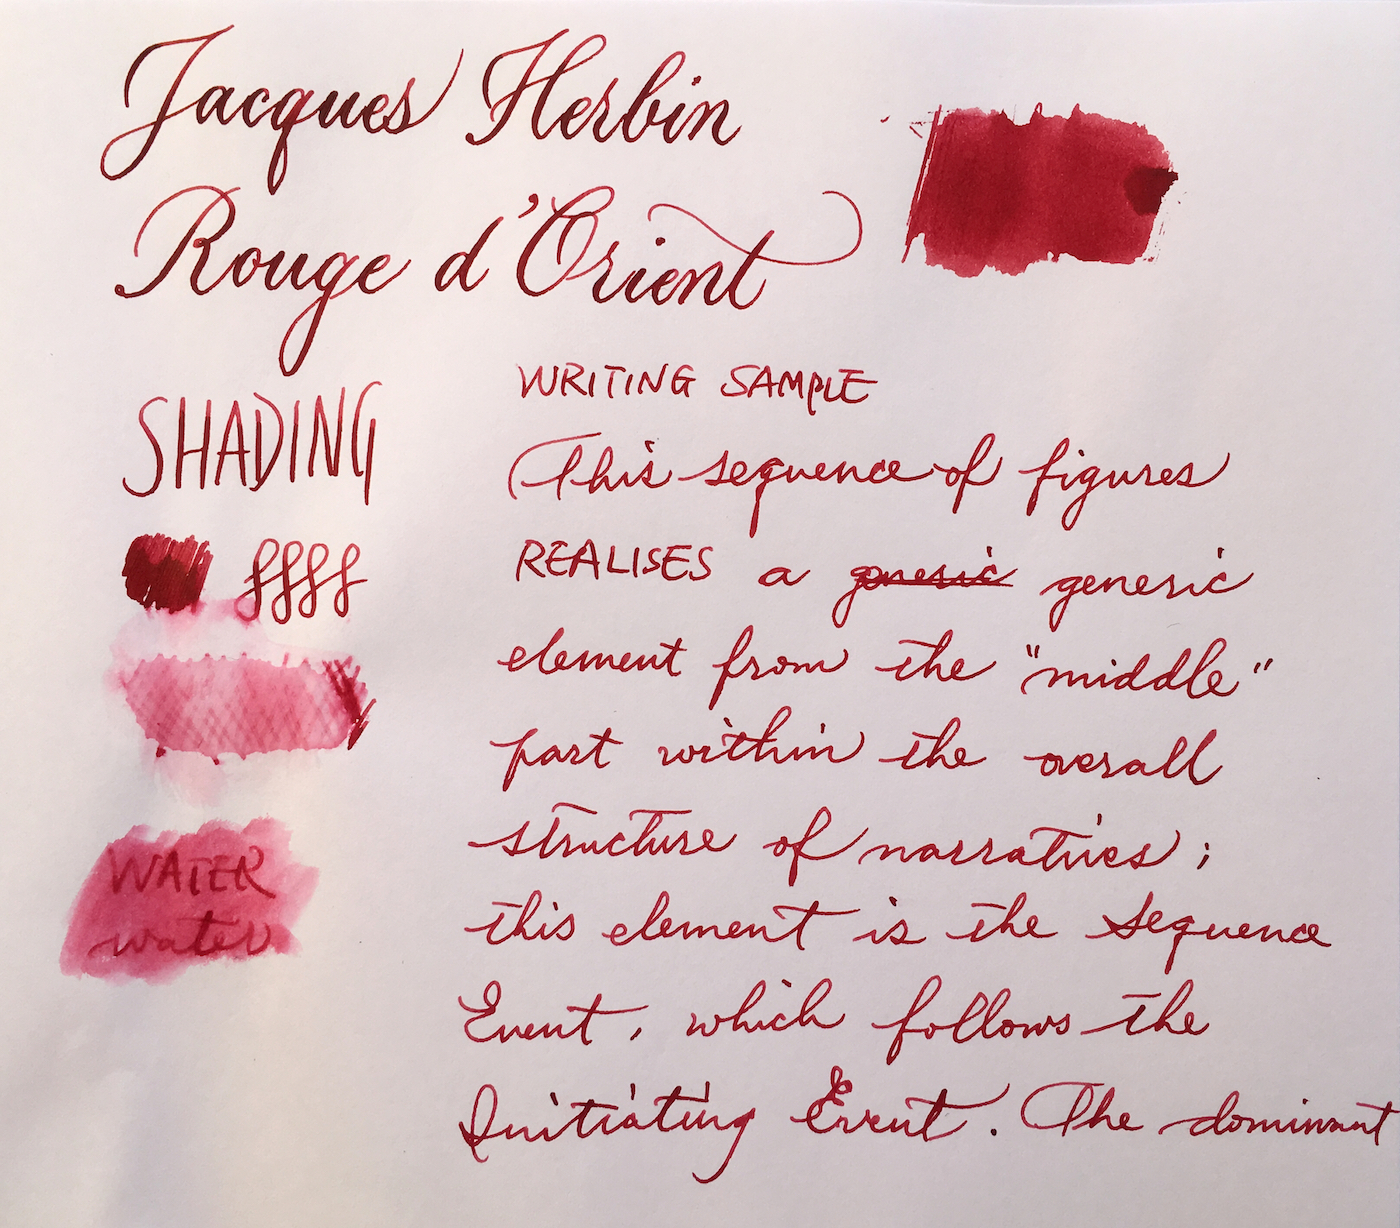 Jacques Herbin
Rouge d'Orient
SHADING
ffff
WATER
water
WRITING SAMPLE
This sequence of figures
REALISES a generic generic
element from the "middle"
part within the overall
structure of narratives;
this element is the Sequence
Event, which follows the
Initiating Event. The dominant